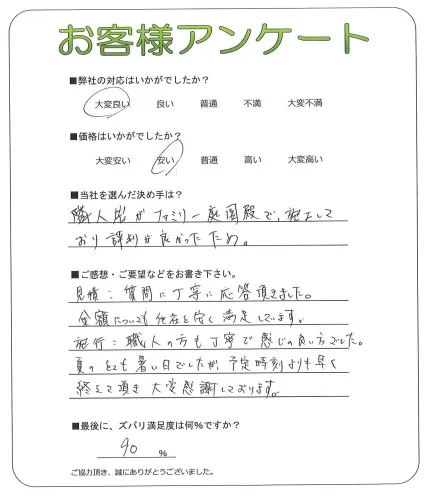 お客様アンケート
■弊社の対応はいかがでしたか?
大変良い 良い 普通 不満 大変不満
■価格はいかがでしたか?
大変安い 安い 普通 高い 大変高い
■当社を選んだ決め手は?
職人さんがファミリー庭園殿で、施工して
おり評判が良かったため。
■ご感想・ご要望などをお書き下さい。
見積:質問に丁寧に応答頂きました。
金額についても他社より安く満足しています。
施行:職人の方も丁寧で感じの良い方でした。
夏のとても暑い日でしたが、予定時刻よりも早く
終えて頂き大変感謝しております。
■最後に、ズバリ満足度は何%ですか?
90 %
ご協力頂き、誠にありがとうございました。